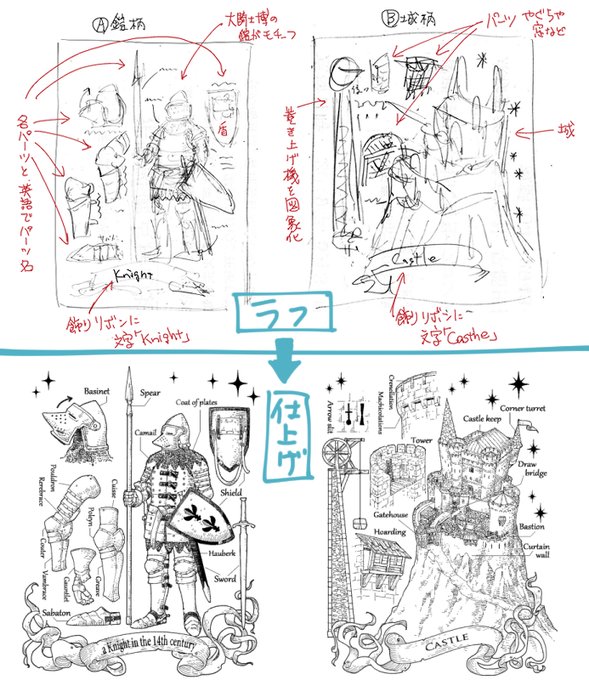 Ⓐ鎧柄
大騎士博の
鎧がモチーフ
各パーツと英語でパーツ名
盾
Knight
飾りリボンに
文字「Knight」
Ⓑ城柄
パーツ やぐらや
窓など
巻き上げ機を図象化
城
Castle
飾りリボンに
文字「Casthe」
ラフ
仕上げ
Basinet
Spear
Coat of plates
Camail
Pouldron
Rerebrace
Cuisse
Poleyn
Shield
Couter
Vambrace
Gauntlet
Greave
Hauberk
Sword
Sabaton
a Knight in the 14th century
Arrow slit
Crenellation
Machicolations
Castle keep
Corner turret
Tower
Draw
bridge
Gatehouse
Hoarding
Bastion
Curtain
wall
CASTLE